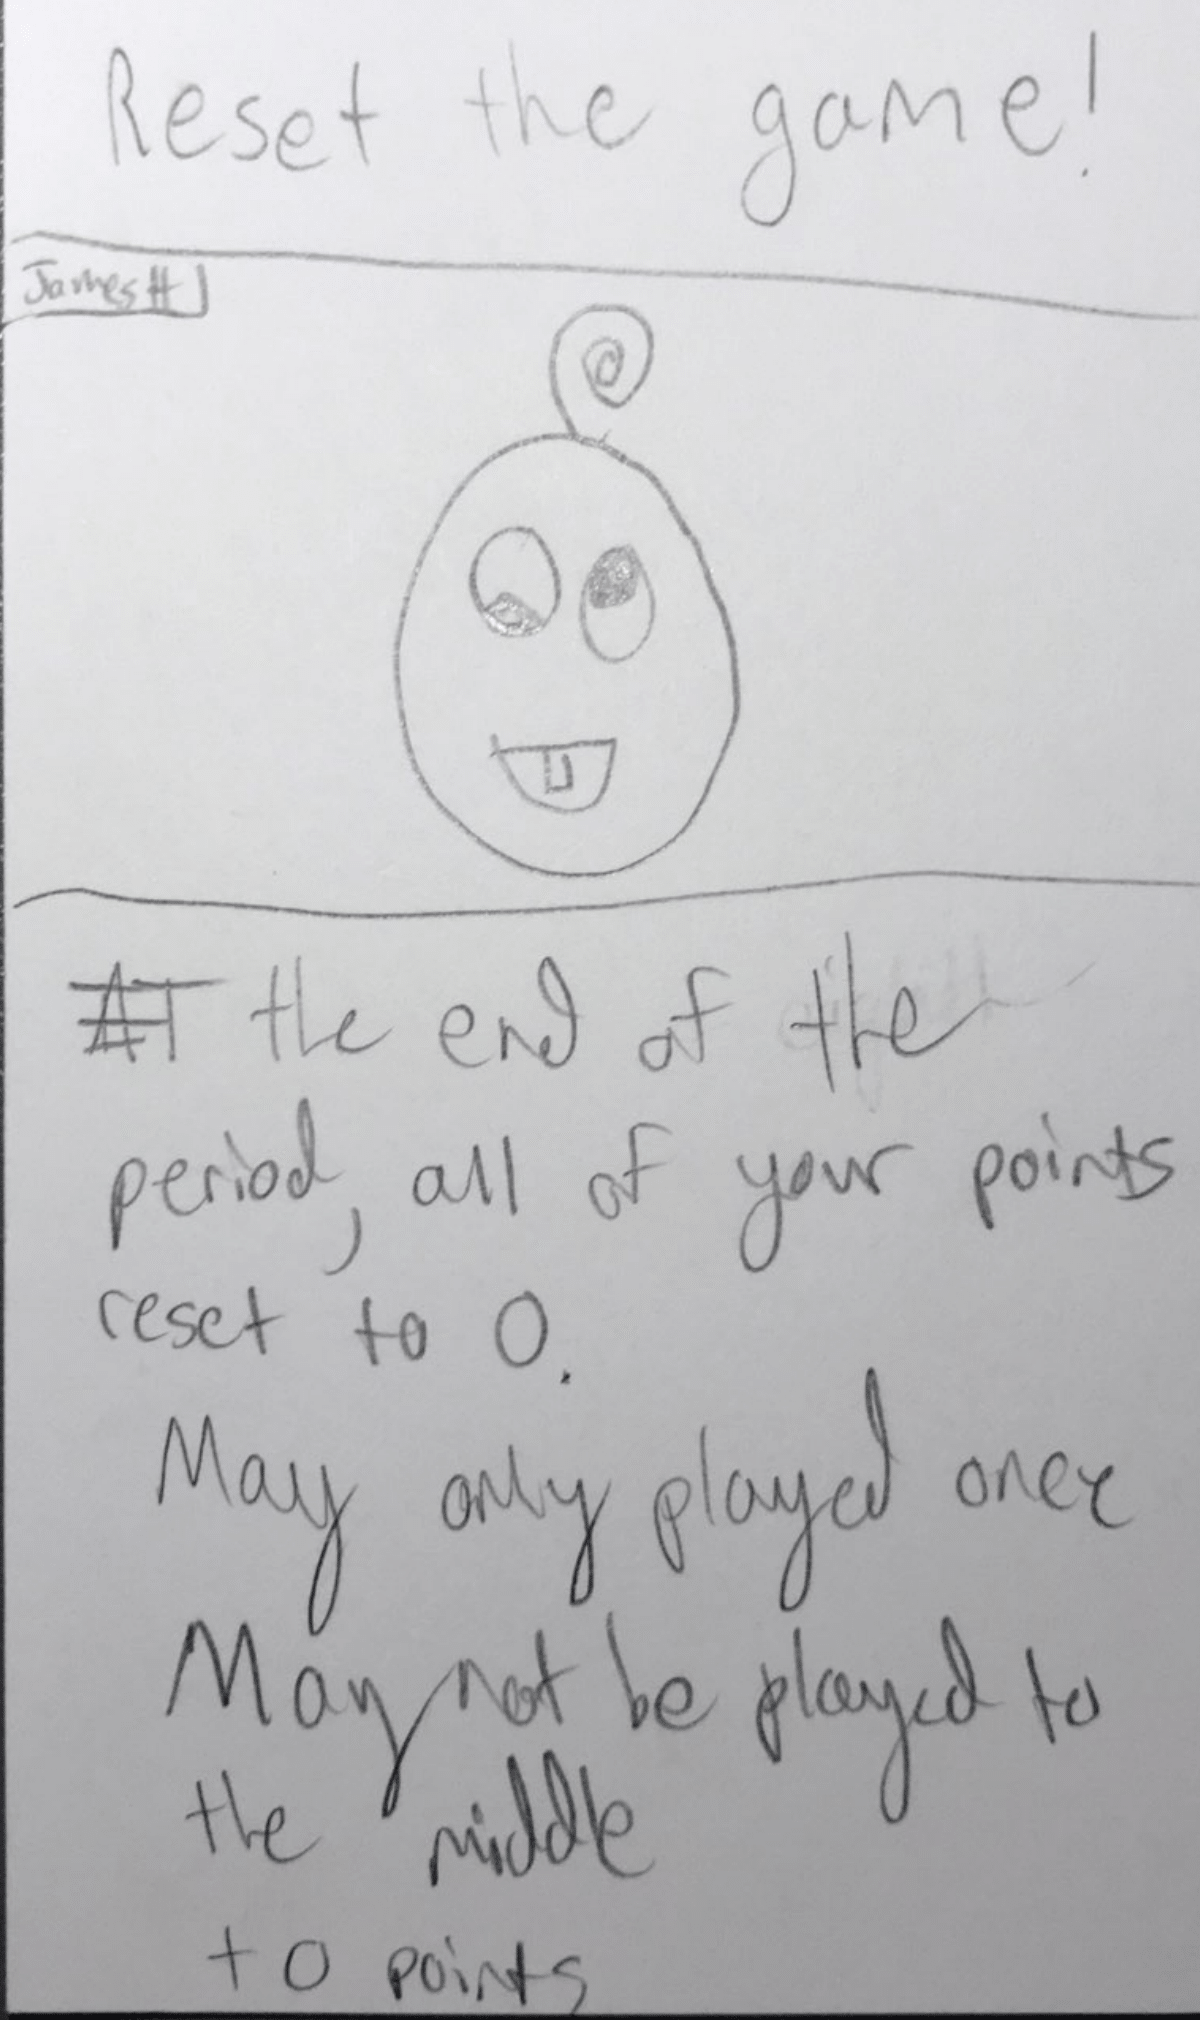 Reset the game!
James H
At the end of the
period, all of your points
reset to 0.
May only played once
May not be played to
the middle
+0 points